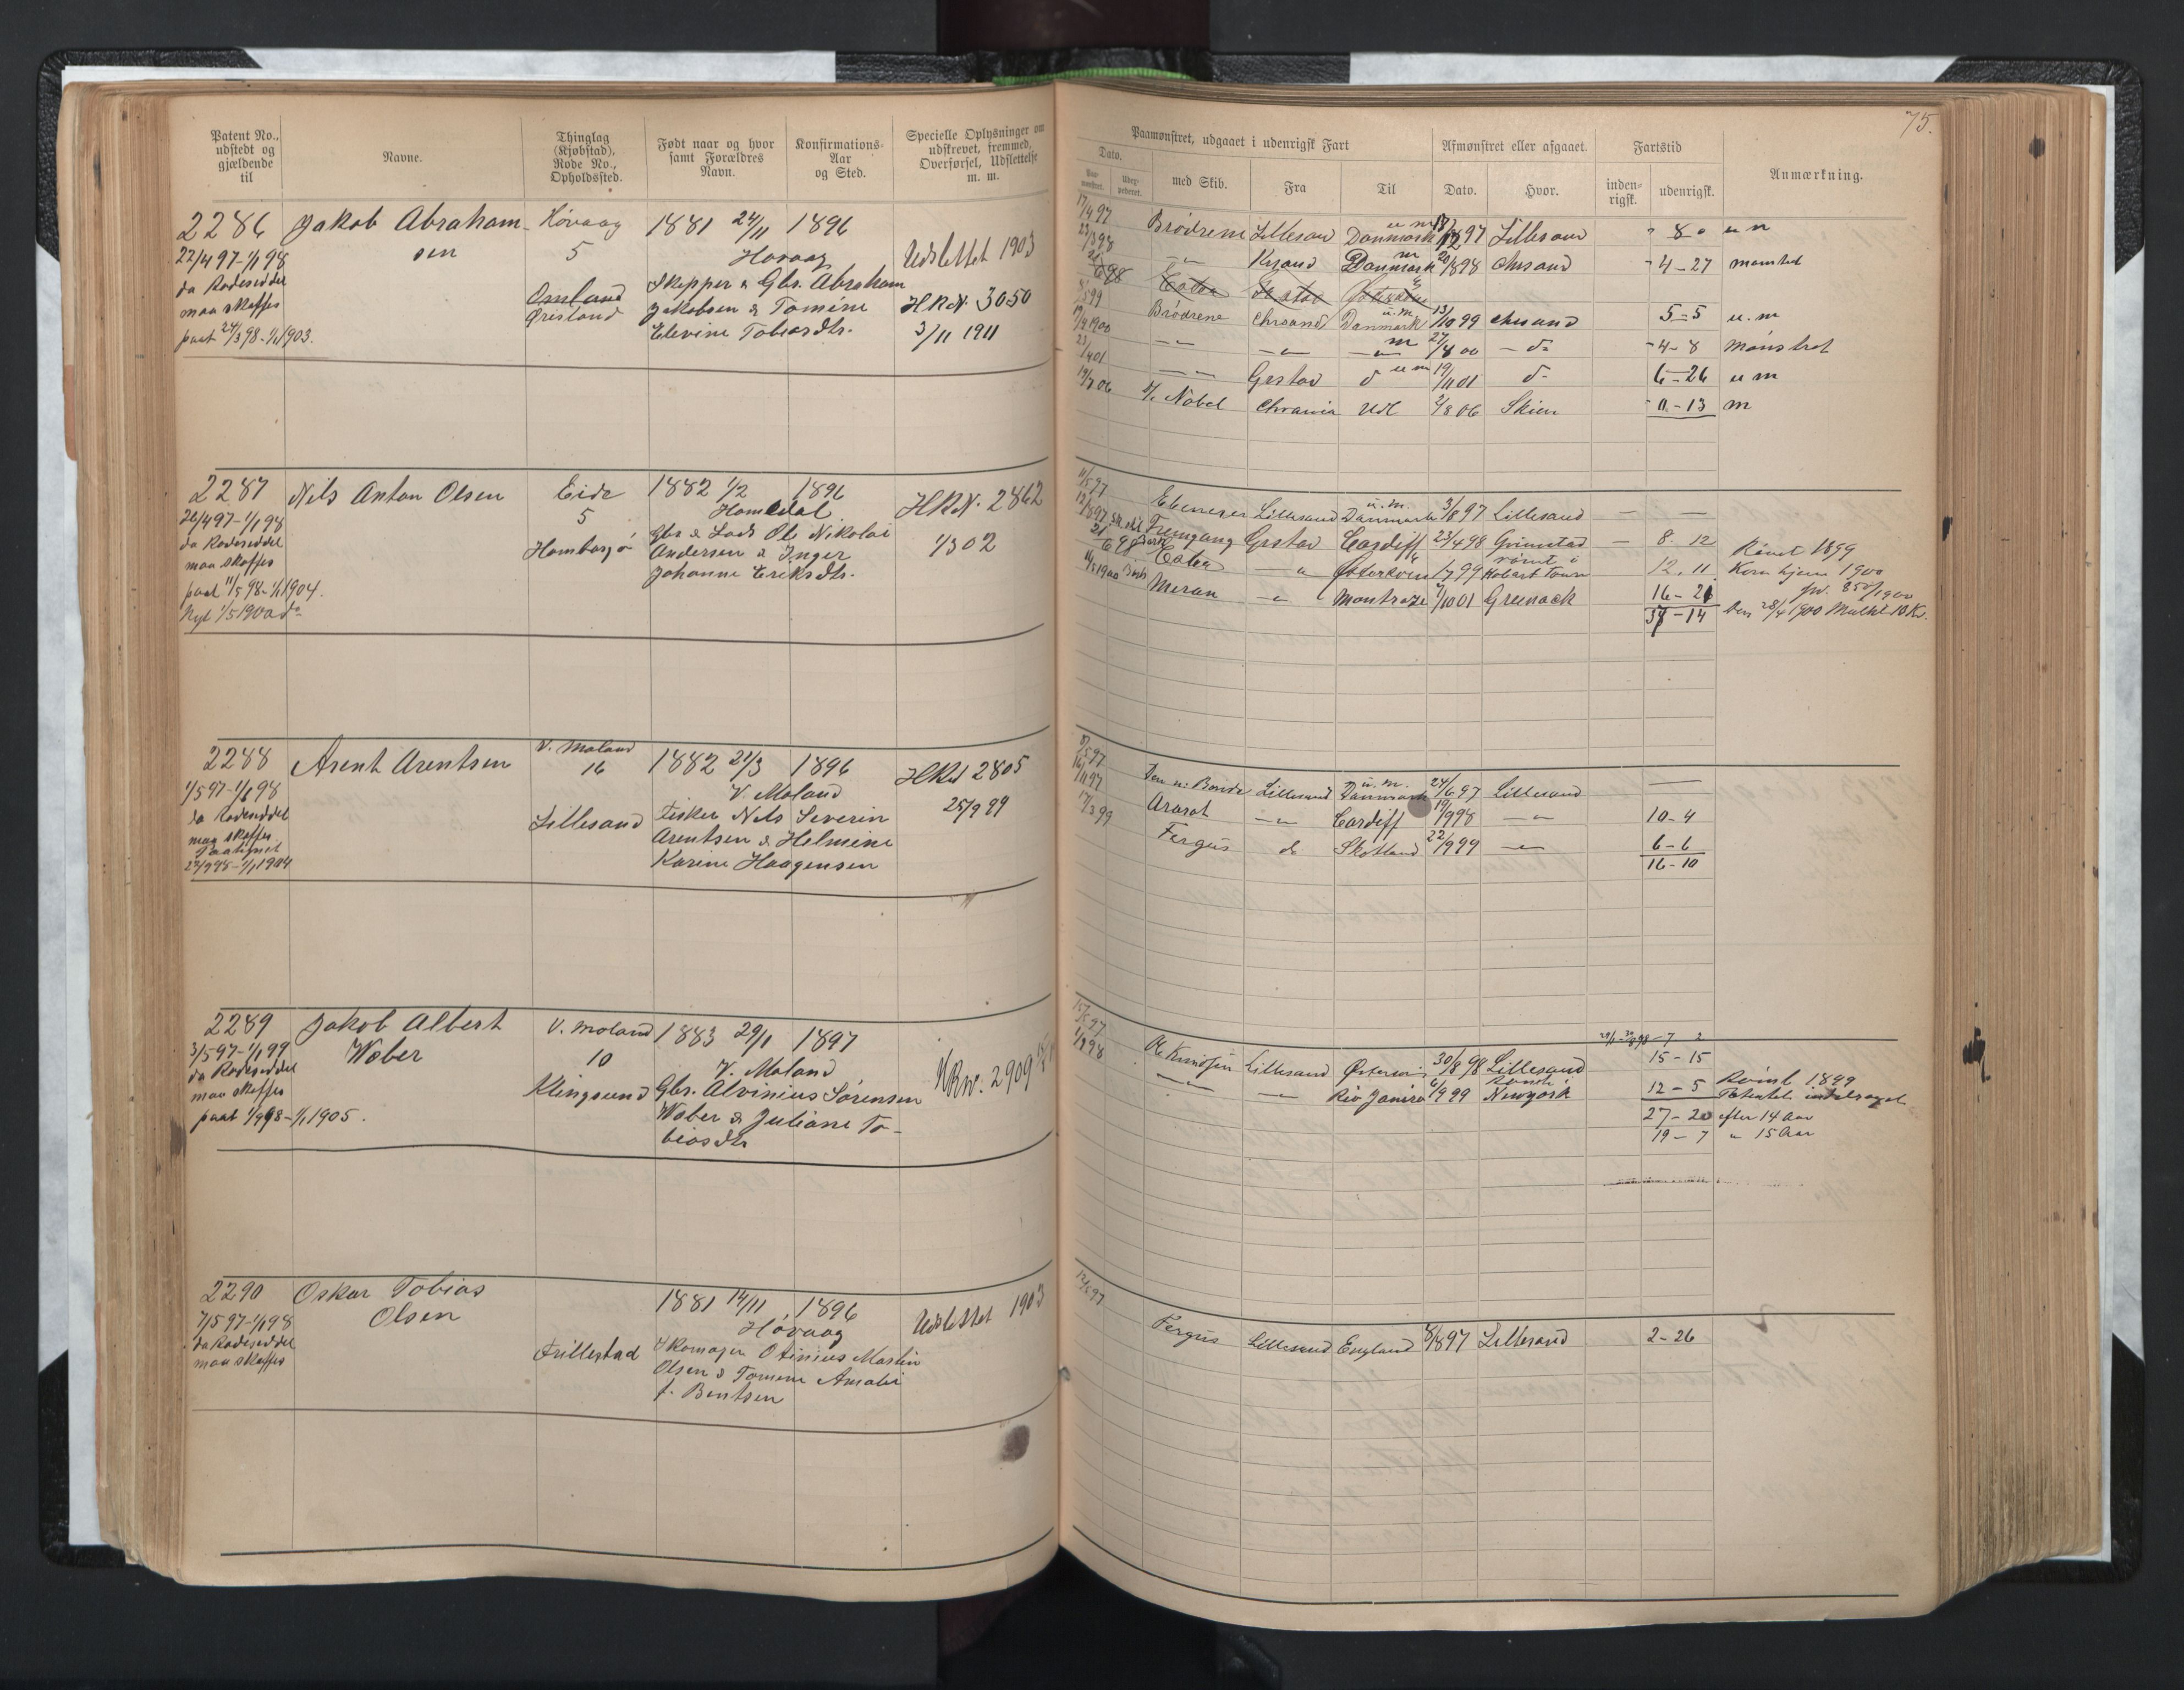 75.
Patent No., udstedt og gjældende til
Navne.
Thinglag (Kjøbstad), Rode No., Opholdssted.
Født naar og hvor samt Forældres Navn.
Konfirmations- Aar og Sted.
Specielle Oplysninger om udskrevet, fremmed, Overførsel, Udslettelse m. m.
Paamønstret, udgaaet i udenrigsk Fart
Afmønstret eller afgaaet.
Fartstid
Anmærkning.
Dato.
med Skib.
Fra
Til
Dato.
Hvor.
inden- rigsk.
udenrigsk.
2286 Jakob Abraham- Høvaag 1881 24/11 1896
22/4 97-1/1 98 sen 5 Høvaag Udslettet 1903
da Rodeseddel Skipper & Gbr. Abraham
maa skaffes Jakobsen & Tomine HRN. 3050
paat 24/3 98-1/1 1903. Elevine Tobiasdtr. 3/11 1911
17/4 97 Brödrene Lillesand Danmark 97 Lillesand 8 u m
23/3 98 Danmark 98 Chrsand 4-27 mønstret
21/6 98
99 Brödrene Chrsand Danmark u.m. 13/10 99 Chrsand 5-5 u.m
1900 m 27/8 00 do 4-8 Mønstret
01 Grstad u m 19/11 01 6-26 u m
06 Nobel Chrania Udl 2/8 06 Skien 0-13 m
2287 Nils Anton Olsen Eide 1882 1/2 1896 HRN. 2862
26/4 97-1/1 98 5 Homedal
da Rodeseddel Gbr & Lods Ole Nikolai 1/3 02
maa skaffes Andersen & Inger
paat 11/5 98-1/1 1904. Johanne Eriksdtr.
Nyt 1/5 1900
11/5 97 Ebenezer Lillesand Danmark u.m. 3/8 97 Lillesand
12/8 97 Fremgang Grstad Cardiff 23/4 98 Grimstad 8. 12
21/6 98 Østersøen 1/7 99 rømt i Hobart Town 12. 11 Rømt 1899
1900 Meran Montroze 1/10 01 Greenock 16-21 Kom hjem 1900
37-14 den 28/4 1900 Mulkt 10 Kr.
2288 Arent Arentsen V. Moland 1882 21/3 1896 HRN 2805
1/5 97-1/1 98 16 V. Moland 25/9 99
da Rodeseddel Lillesand Fisker Nils Severin
maa skaffes Arentsen & Helmine
Paategnet Karine Haagensen
22/9 98-1/1 1904
5 97 Lillesand Danmark u.m. 24/6 97 Lillesand
11 97 Ararat Cardiff 19/9 98 10-4
17/3 99 Fergus do Skotland 22/9 99 6-6
16-10
2289 Jakob Albert V. Moland 1883 29/1 1897
3/5 97-1/1 99 Wober 10 V. Moland HRN. 2909
da Rodeseddel Klingsund Gbr. Alvinius Sørensen
maa skaffes Wober & Juliane To-
paat 1/9 98-1/1 1905. biasdtr
15/5 97 Ole Knudsen Lillesand 30/8 98 Lillesand 15-15
1/9 98 Rio Janiro 99 Newyork 12-5 Rømt 1899
Patentet inddraget
27-20 efter 14 Aar
19-7 " 15 Aar
2290 Oskar Tobias 1881 14/11 1896 Udslettet 1903
7/5 97-1/1 98 Olsen Høvaag
da Rodeseddel Skomager Otinius Martin
maa skaffes Olsen & Tomine Amalie
f. Bentsen
12/5 97 Fergus Lillesand England 8/8 97 Lillesand 2-26